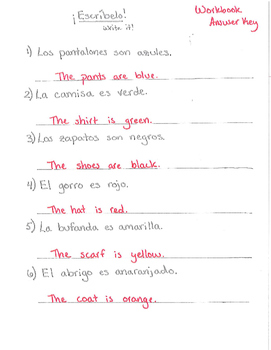 ¡Escríbelo!
Write it!
Workbook
Answer Key
1) Los pantalones son azules.
The pants are blue.
2) La camisa es verde.
The shirt is green.
3) Los zapatos son negros.
The shoes are black.
4) El gorro es rojo.
The hat is red.
5) La bufanda es amarilla.
The scarf is yellow.
6) El abrigo es anaranjado.
The coat is orange.